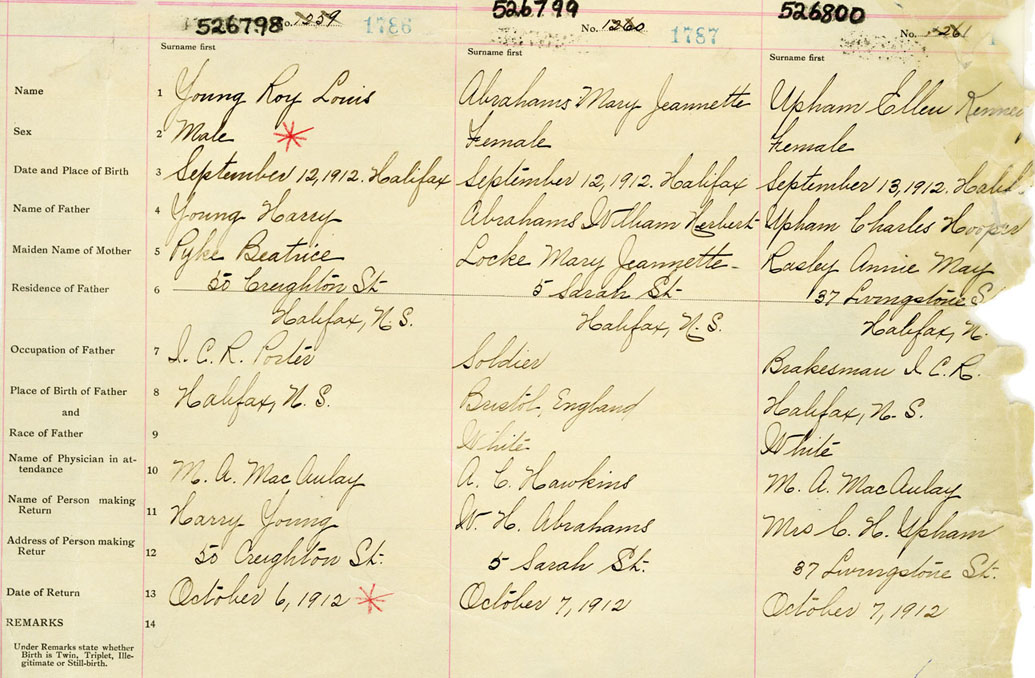 526798 No. 1259 1786
526799 No. 1260 1787
526800 No. 1261
Surname first Surname first Surname first
Name 1 Young Roy Louis Abrahams Mary Jeannette Upham Ellen
Sex 2 Male Female Female
Date and Place of Birth 3 September 12, 1912. Halifax September 12, 1912. Halifax September 13, 1912.
Name of Father 4 Young Harry Abrahams William Herbert Upham Charles Hooper
Maiden Name of Mother 5 Pyke Beatrice Locke Mary Jeannette Rasley Annie May
Residence of Father 6 50 Creighton St. 5 Sarah St. 37 Livingstone S
Halifax, N.S. Halifax, N.S. Halifax, N.
Occupation of Father 7 I.C.R. Porter Soldier Brakesman I.C.R.
Place of Birth of Father 8 Halifax, N.S. Bristol, England Halifax, N.S.
and
Race of Father 9 White White
Name of Physician in at-
tendance 10 M. A. MacAulay A. C. Hawkins M. A. MacAulay
Name of Person making
Return 11 Harry Young W. H. Abrahams Mrs C. H. Upham
Address of Person making
Retur 12 50 Creighton St. 5 Sarah St. 37 Livingstone St.
Date of Return 13 October 6, 1912 October 7, 1912 October 7, 1912
REMARKS 14
Under Remarks state whether
Birth is Twin, Triplet, Ille-
gitimate or Still-birth.